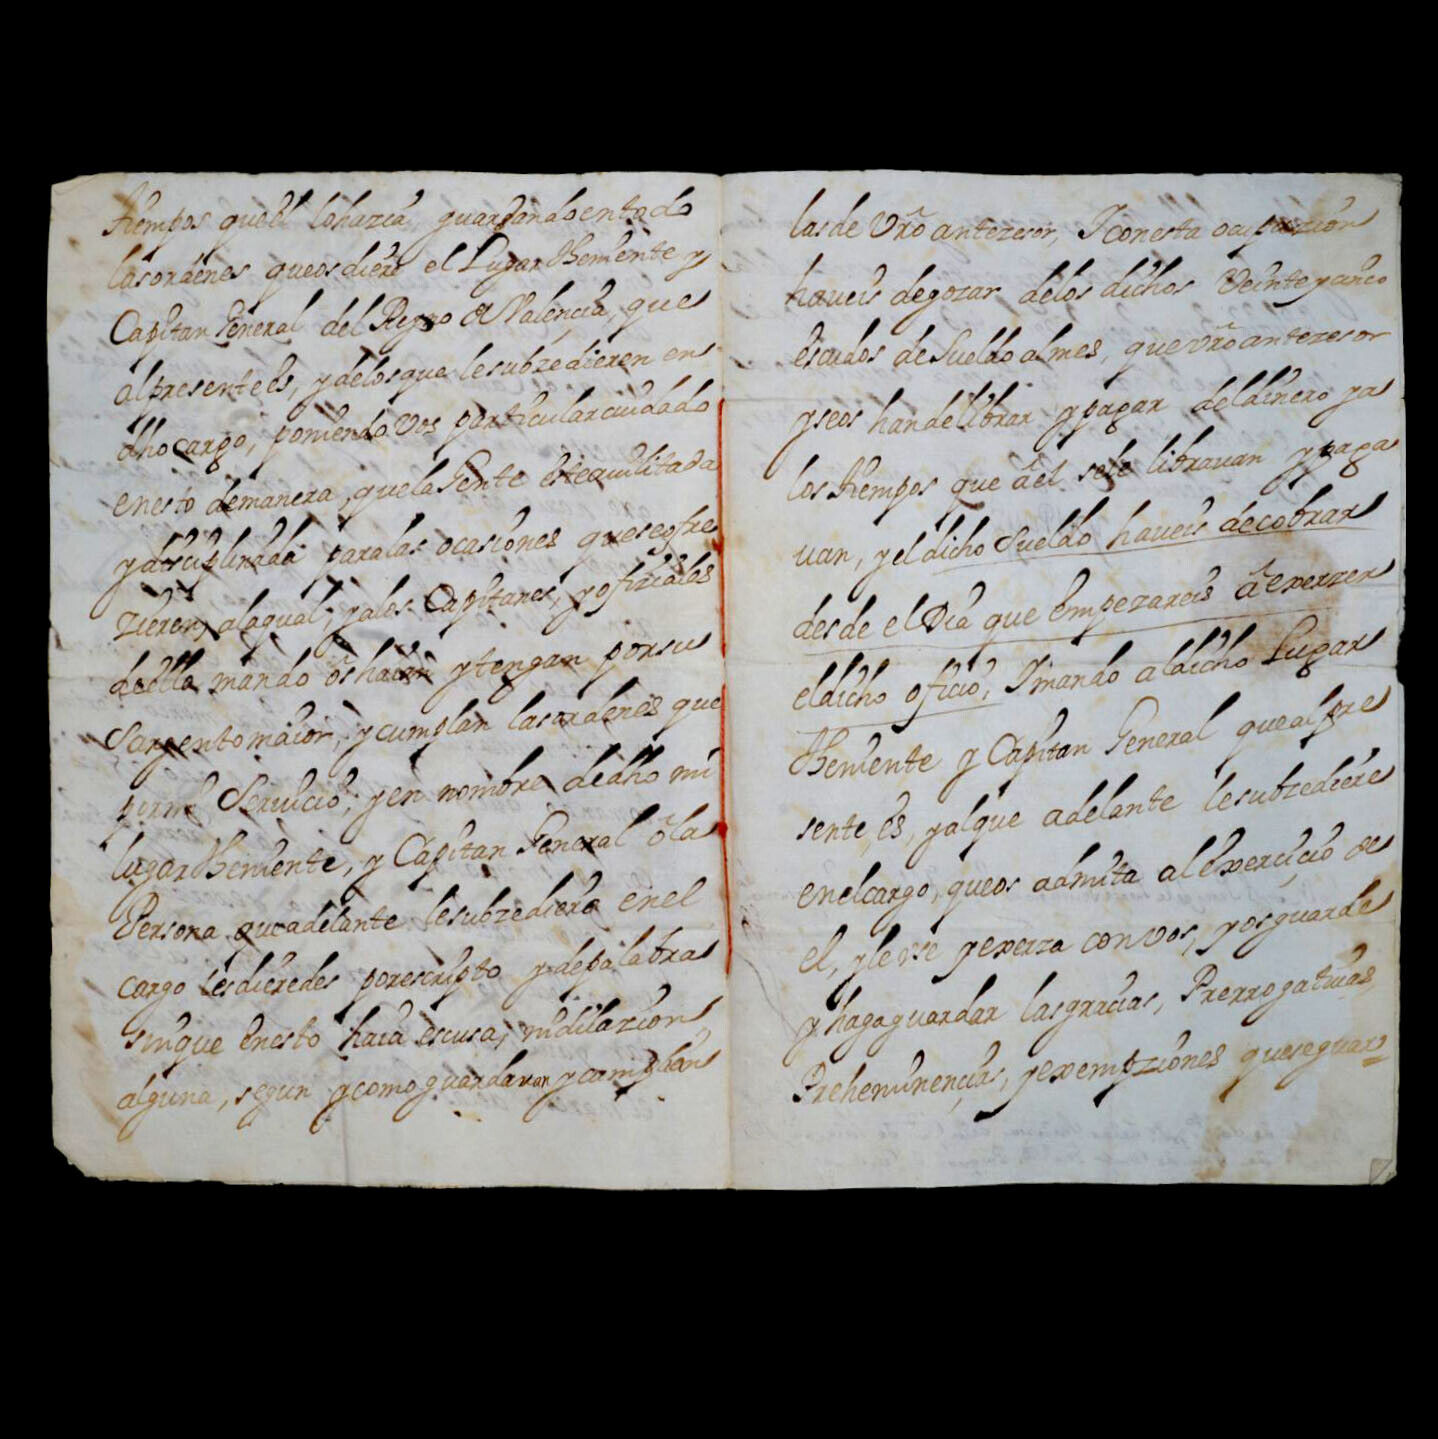 tiempos que el lo hazia, guardando en todo
las ordenes que os diere el Lugar Theniente y
Capitan General del Reyno de Valencia, que
al presente és, y de los que le subzedieren en
dho cargo, poniendo vos particular cuidado
en esto de manera, que la Gente esté avilitada
y disciplinada para las ocasiones que se ofre
zieren, a la qual, y a los Capitanes, y ofiziales
de ella mando ôs haian y tengan por su
Sargento maior, y cumplan las ordenes que
por mi Servicio, y en nombre de dho mi
lugar Theniente, y Capitan General ô la
Persona que adelante le subzediere en el
cargo les dieredes por escripto y de palabra
sin que en esto haia escusa, ni dilazion
alguna, segun y como guardavan y cumplian
las de Vrõ antezesor, I con esta ocupazion
haveis de gozar de los dichos Veinte y cinco
escudos de Sueldo al mes, que vrõ antezesor
y se os han de librar y pagar del dinero y a
los tiempos que â él se le libravan y paga
van, y el dicho Sueldo haveis de cobrar
desde el Dia que empezareis â exerzer
el dicho oficio, I mando al dicho Lugar
Theniente y Capitan General que al pre
sente és, y al que adelante le subzediere
en el cargo, que os admita al exercicio de
el, y le vse y exerza con vos, y os guarde
y haga guardar las gracias, Prerrogativas,
Prehemunencias, y exempziones que se guar=